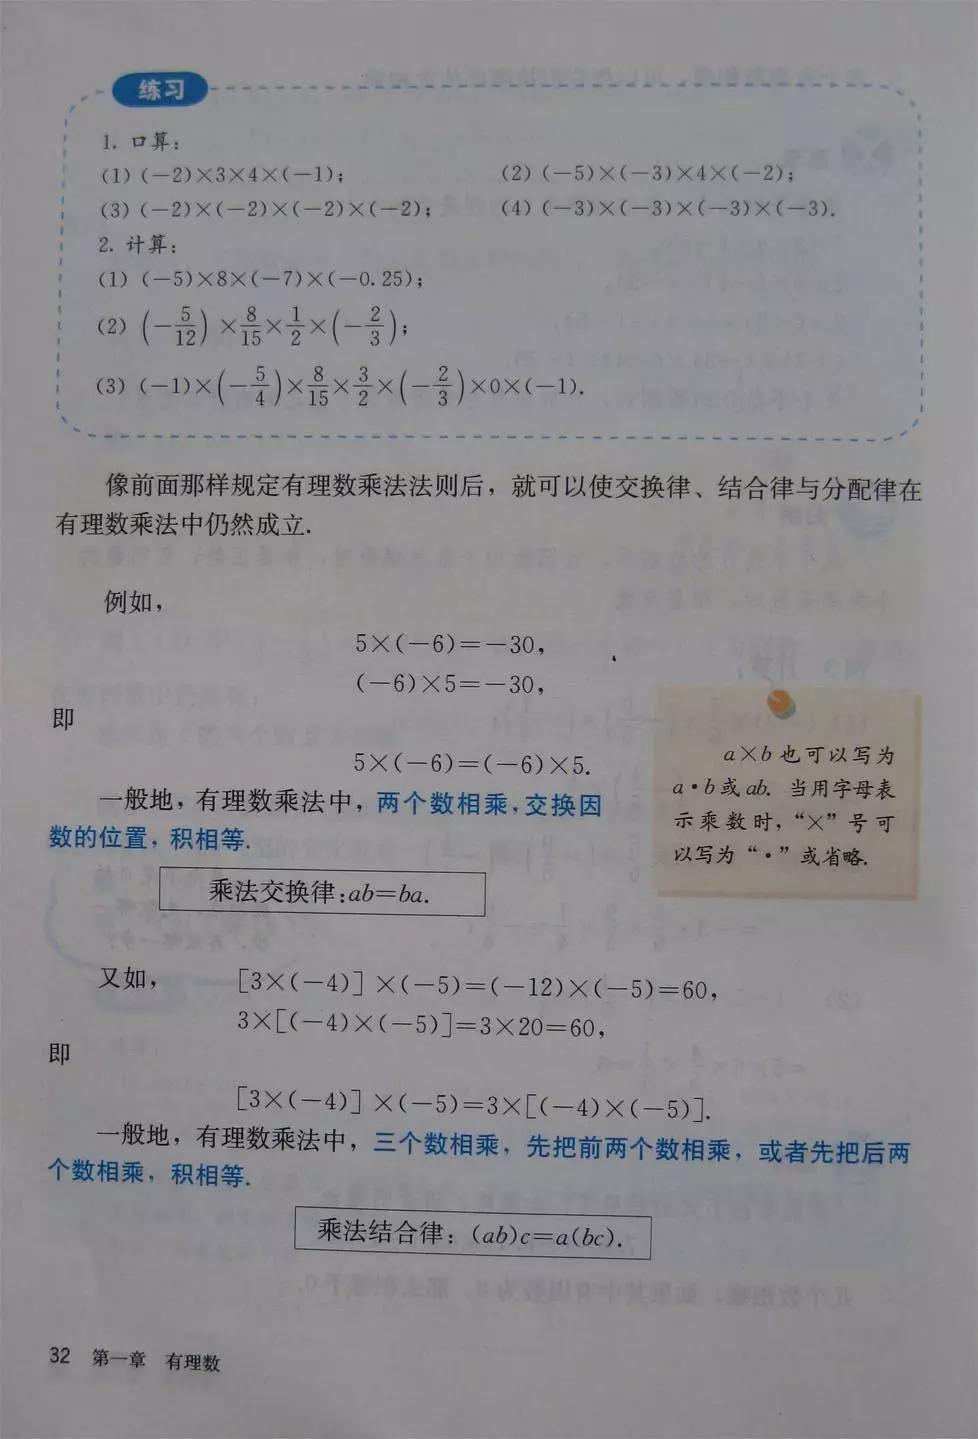 练习
1. 口算:
(1) (-2)×3×4×(-1); (2) (-5)×(-3)×4×(-2);
(3) (-2)×(-2)×(-2)×(-2); (4) (-3)×(-3)×(-3)×(-3).
2. 计算:
(1) (-5)×8×(-7)×(-0.25);
(2) (-5/12)×8/15×1/2×(-2/3);
(3) (-1)×(-5/4)×8/15×3/2×(-2/3)×0×(-1).
像前面那样规定有理数乘法法则后，就可以使交换律、结合律与分配律在
有理数乘法中仍然成立.
例如，
5×(-6)=-30,
(-6)×5=-30,
即
5×(-6)=(-6)×5.
一般地，有理数乘法中，两个数相乘，交换因
数的位置，积相等.
a×b 也可以写为
a·b或ab. 当用字母表
示乘数时，“×”号可
以写为“·”或省略.
乘法交换律:ab=ba.
又如， [3×(-4)]×(-5)=(-12)×(-5)=60,
3×[(-4)×(-5)]=3×20=60,
即
[3×(-4)]×(-5)=3×[(-4)×(-5)].
一般地，有理数乘法中，三个数相乘，先把前两个数相乘，或者先把后两
个数相乘，积相等.
乘法结合律: (ab)c=a(bc).
32 第一章 有理数